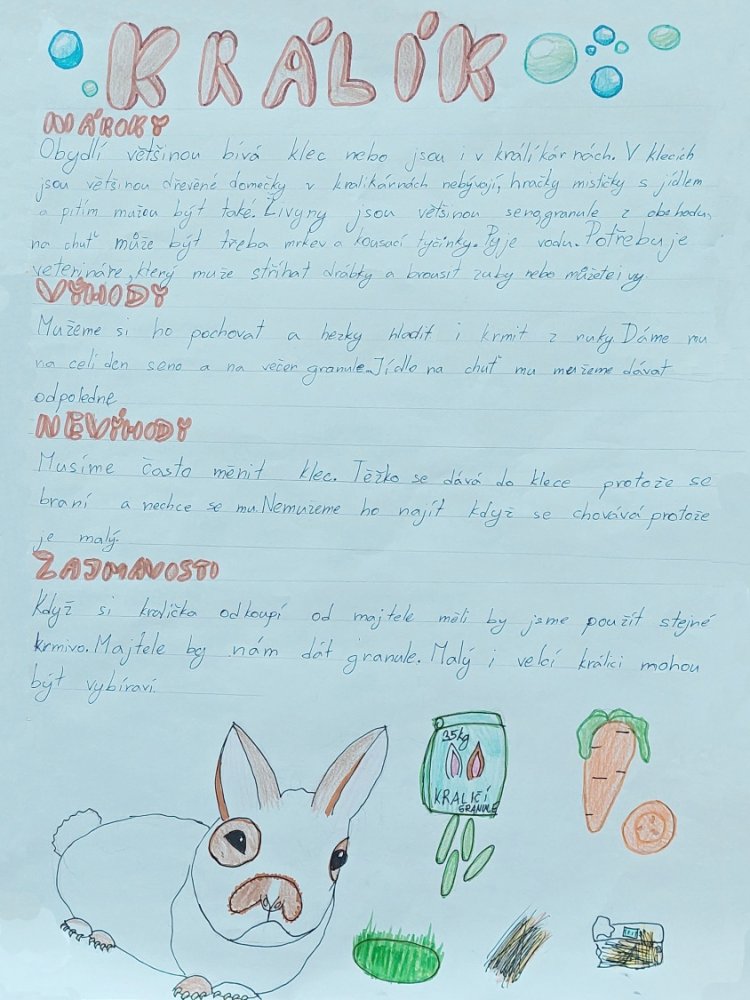 KRÁLÍK
NÁROKY
Obydlí většinou bívá klec nebo jsou i v králíkárnách. V klecích
jsou většinou dřevěné domečky v kralikárnách nebývají, hračky mističky s jídlem
a pitím mužou být také. Živyny jsou většinou seno,granule z obchodu,
na chuť může být třeba mrkev a kousací tyčinky. Pyje vodu. Potřebuje
veterináře, který muže stříhat drábky a brousit zuby nebo můžete i vy
VÝHODY
Mužeme si ho pochovat a hezky hladit i krmit z ruky Dáme mu
na celi den seno a na večer granule. Jídlo na chuť mu mužeme dávat
odpoledne
NEVÝHODY
Musíme často měnit klec. Těžko se dává do klece protože se
braní a nechce se mu. Nemužeme ho najít když se chovává protože
je malý.
ZAJMAVOSTI
Když si kralička odkoupí od majtele měli by jsme použít stejné
krmivo. Majtele by nám dát granule. Malý i velcí králici mohou
být vybíraví.
35kg
KRALIČÍ
GRANULE